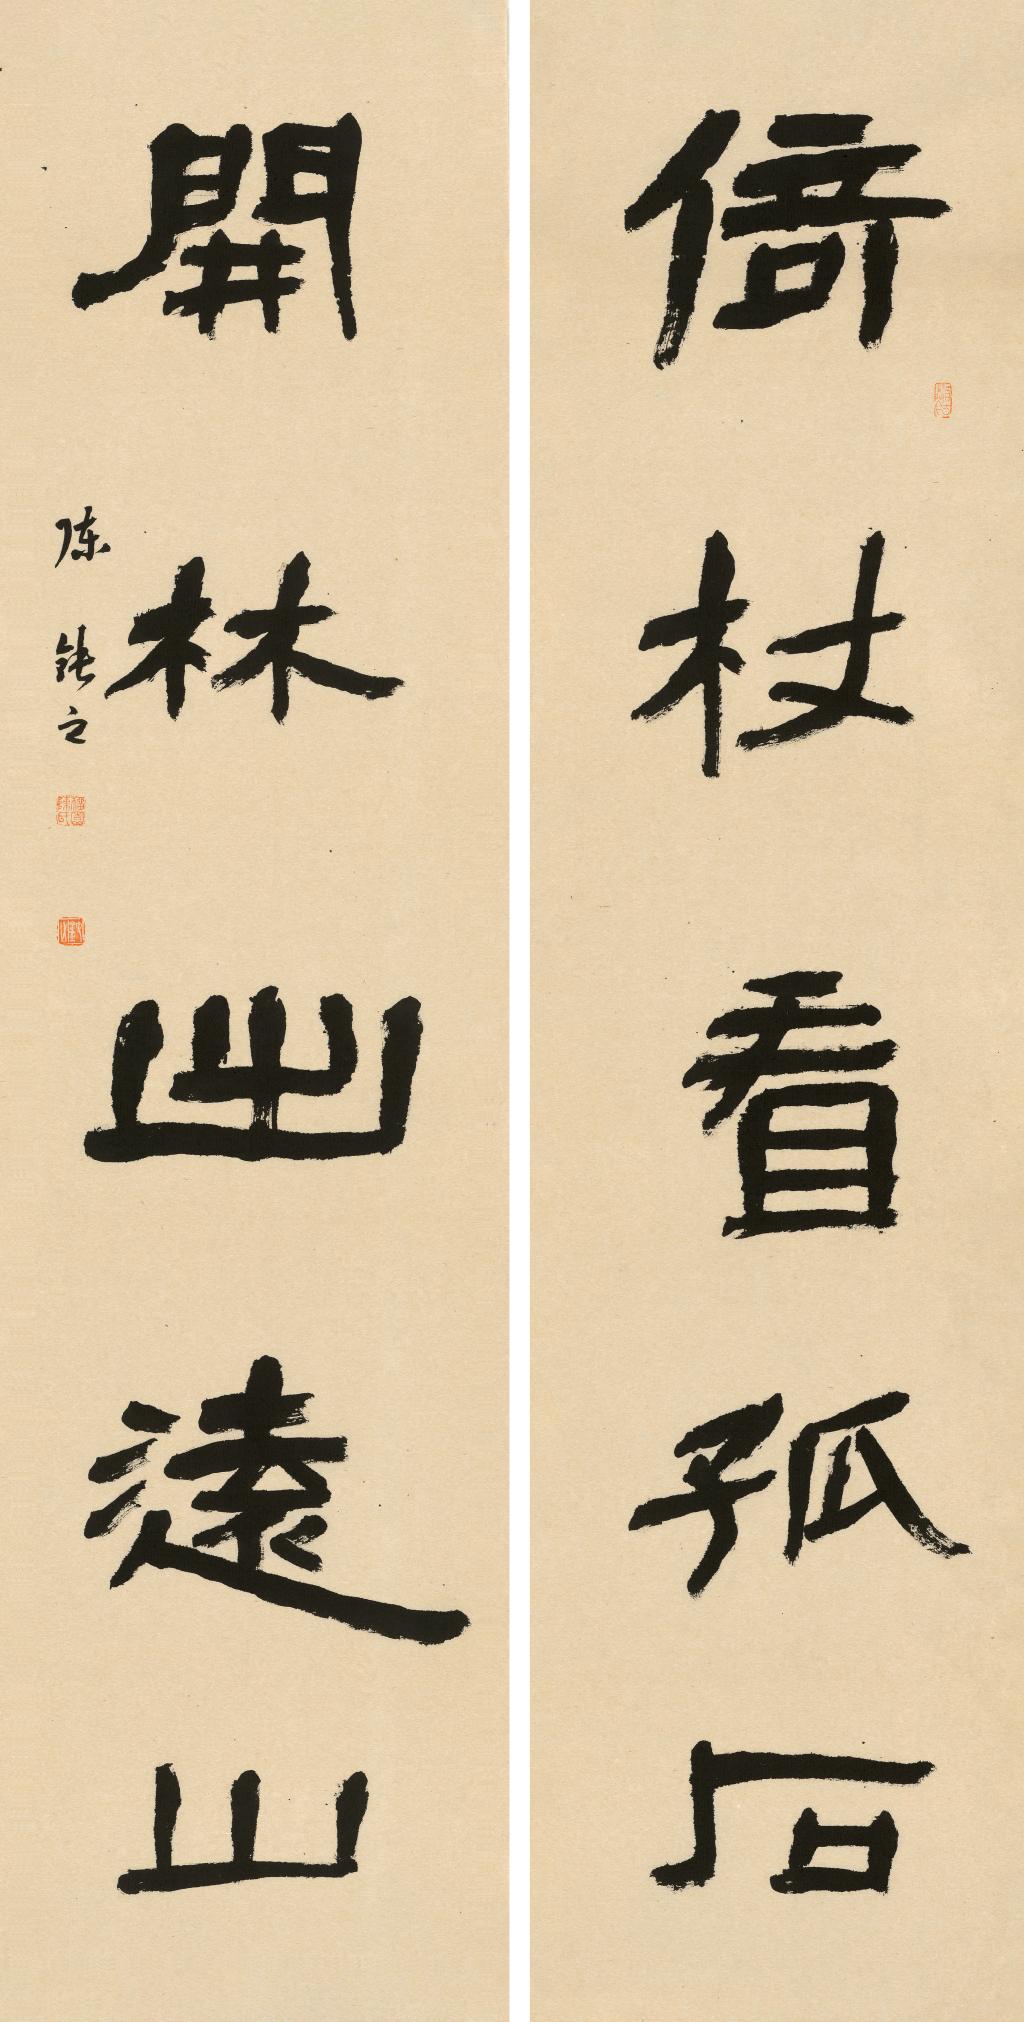 倚杖看孤石
開林出遠山
陈鍊之